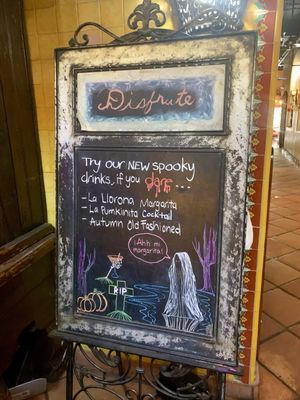 Disfrute
Try our NEW spooky
drinks, if you dare...
- La Llorona Margarita
- La Pumkinita Cocktail
- Autumn Old Fashioned
¡Ahh mi
margarita!
RIP